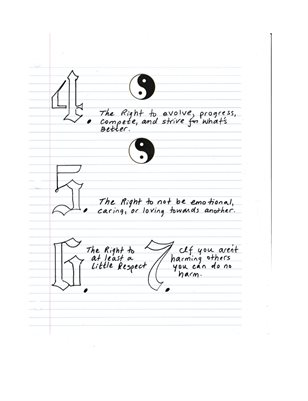 4. The Right to evolve, progress,
compete, and strive for what's
Better.
5. The Right to not be emotional,
caring, or loving towards another.
6. The Right to
at least a
Little Respect
7. If you aren't
harming others
you can do no
harm.